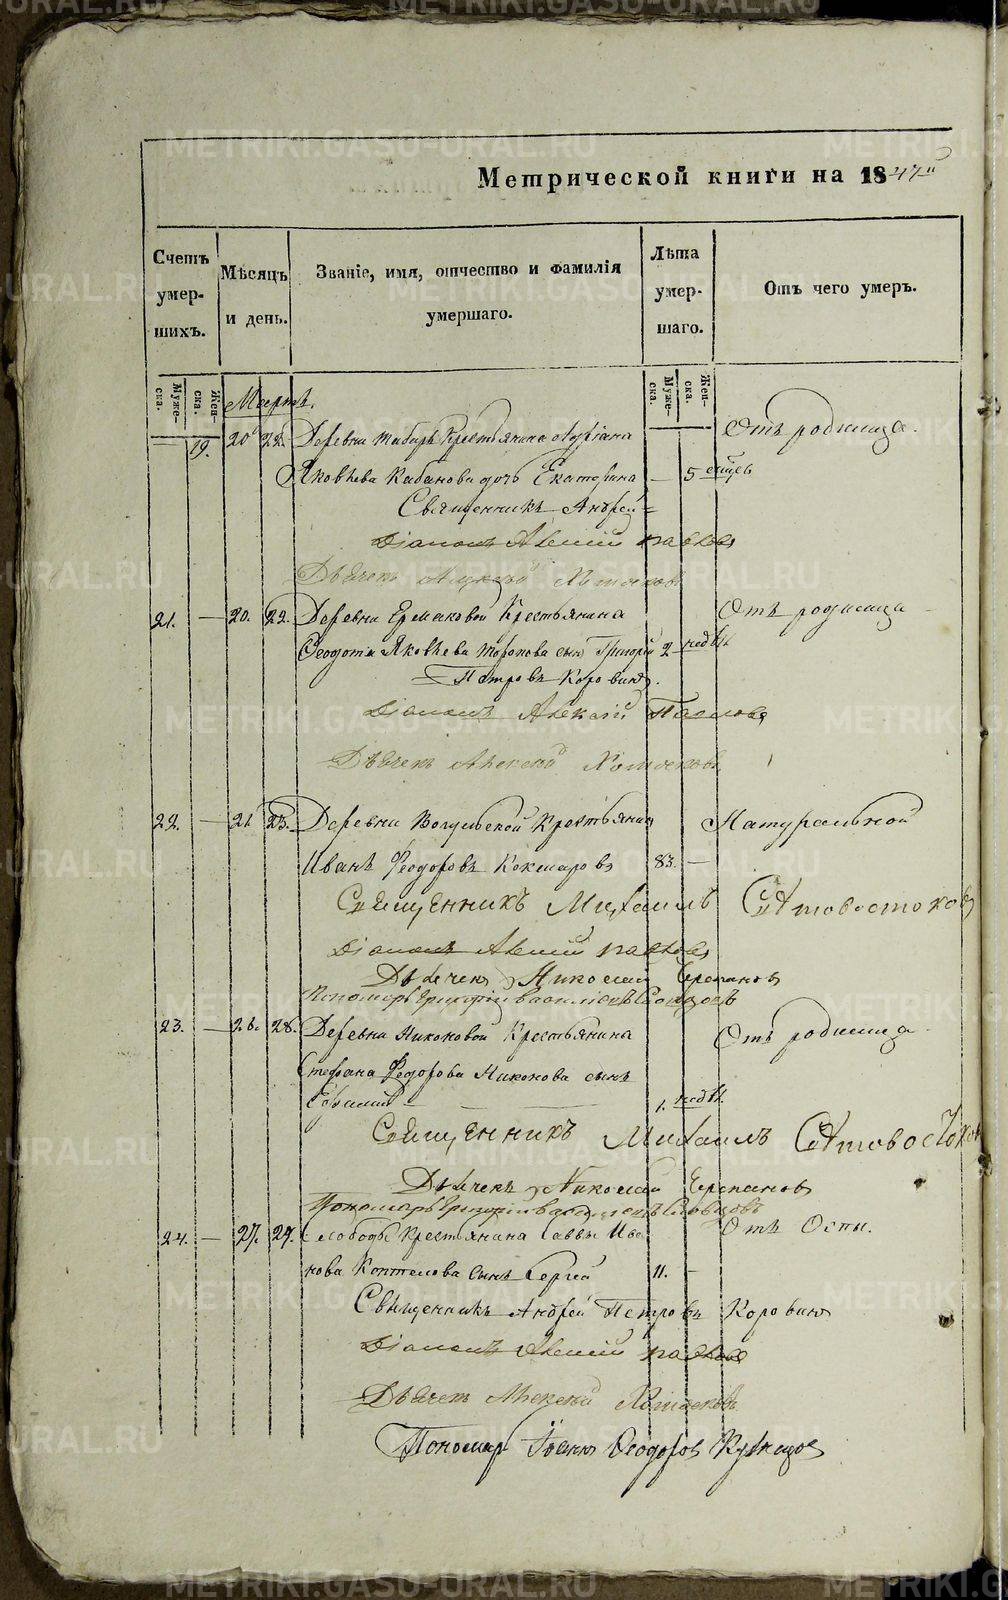 Метрической книги на 1847й
Счетъ умер- шихъ.
Мѣсяцъ и день.
Званіе, имя, отчество и фамилія умершаго.
Лѣта умер- шаго.
Отъ чего умеръ.
Муже- ска.
Жен- ска.
Муже- ска.
Жен- ска.
Мартъ.
19. 20 22. Деревни Крестьянина Отъ родимца.
Яковлева Кабанова дочь Екатерина — 5 мѣсѧ
Священникъ Андрей =
Діаконъ Алексій Павловъ
Дьячекъ Алексѣй Хомяковъ
21. — 20. 22. Деревни Ермаковой Крестьянина Отъ родимца
Ѳеодота Яковлева Торопова сынъ Григорій 2 недѣл.
= Петровъ Коровинъ.
Діаконъ Алексій Павловъ
Дьячекъ Алексѣй Хомяковъ
22. — 21 23. Деревни Крестьянинъ Натуральной
Иванъ Ѳеодоровъ Кокшаровъ 83. —
Священникъ Михаилъ Свѣтовостоковъ
Діаконъ Алексій Павловъ
Дьячекъ Николай Черепановъ
Пономарь Григорій Василіевъ Словцовъ
23. — 26. 28. Деревни Никоновой Крестьянина Отъ родимца.
Стефана Ѳедорова Никонова сынъ
1. недѣл.
Священникъ Михаилъ Свѣтовостоковъ
Дьячекъ Николай Черепановъ
Пономарь Григорій Василіевъ Словцовъ
24. — 27. 29. Слободы Крестьянина Саввы Ива- Отъ Оспы.
нова Коптелова сынъ Сергій 11. —
Священникъ Андрей Петровъ Коровинъ
Діаконъ Алексій Павловъ
Дьячекъ Алексѣй Хомяковъ
Пономарь Іоаннъ Ѳеодоровъ Кузнецовъ
METRIKI.GASO-URAL.RU